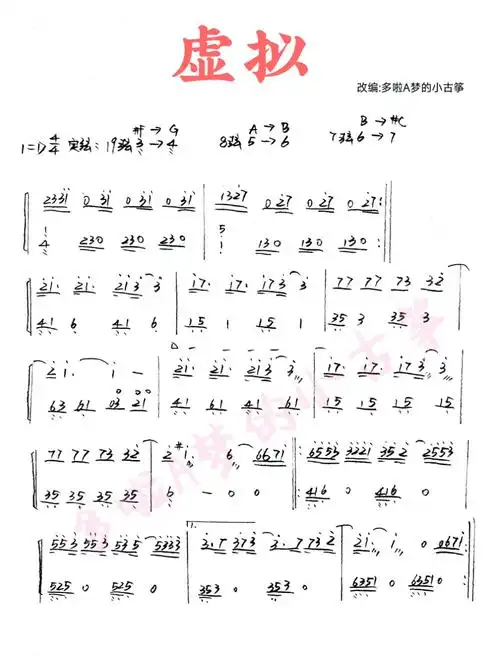 虚拟
改编:多啦A梦的小古筝
1=D 4/4 定弦: 19弦 #F→G 3→4 8弦 A→B 5→6 7弦 B→#C 6→7
2331 031 031 031 | 1327 027 027 027
4 230 230 230 | 1 130 130 130
21· 21· 213 3 | 17· 17· 173 3 | 77 77 73 32
41 6 41 6 | 15 1 15 1 | 35 3 35 3
21· 1 - | 21· 21· 213 3 | 17· 17· 173 3
63 61 03 21 | 41 61 41 61 | 15 15 15 15
77 77 73 32 | 2#1· 6 6671 | 6553 3221 352 2553
35 35 35 35 | 6 - 0 0 | 416 0 416 0
553 553 535 5333 | 3·7 373 3·7 732 | 21· 1 0 0671
525 0 525 0 | 353 0 353 0 | 6351 0 6351 0
多啦A梦的小古筝